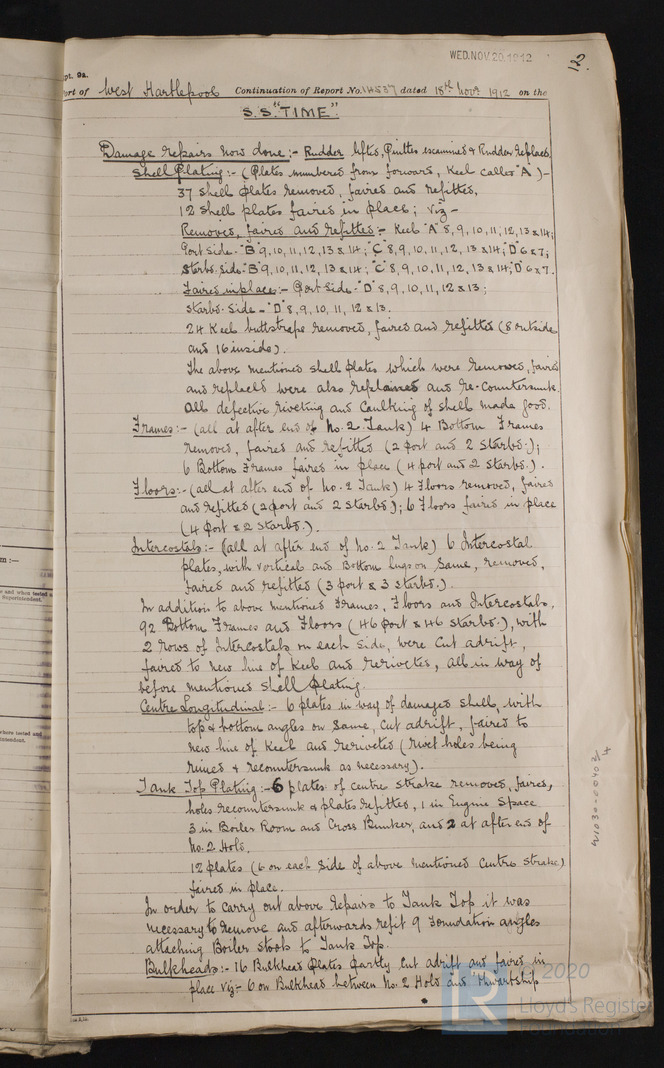 WED.NOV.20.1912
12.
pt. 9a.
ort of West Hartlepool Continuation of Report No. 14537 dated 18th Novr 1912 on the
S.S. "TIME".
Damage repairs now done:- Rudder lifted, Pintles examined & Rudder replaced,
Shell Plating:- (Plates numbered from forward, Keel called "A")-
37 Shell plates removed, faired and refitted,
12 Shell plates faired in place; viz-
Removed, faired and refitted:- Keel "A" 8, 9, 10, 11, 12, 13 & 14;
Port Side-"B" 9, 10, 11, 12, 13 & 14; "C" 8, 9, 10, 11, 12, 13 & 14; "D" 6 & 7;
Starbd. Side-"B" 9, 10, 11, 12, 13 & 14; "C" 8, 9, 10, 11, 12, 13 & 14; "D" 6 & 7.
Faired in place:- Port Side-"D" 8, 9, 10, 11, 12 & 13;
Starbd. Side-"D" 8, 9, 10, 11, 12 & 13.
24 Keel buttstraps removed, faired and refitted (8 outside
and 16 inside).
The above mentioned shell plates which were removed, faired
and replaced were also replaned and re-countersunk.
All defective riveting and Caulking of shell made good.
Frames:- (all at after end of No. 2 Tank) 4 Bottom Frames
removed, faired and refitted (2 port and 2 starbd.);
6 Bottom Frames faired in place (4 port and 2 starbd.).
Floors:- (all at after end of No. 2 Tank) 4 Floors removed, faired
and refitted (2 port and 2 starbd); 6 Floors faired in place
(4 port & 2 starbd.).
Intercostals:- (all at after end of No. 2 Tank) 6 Intercostal
plates, with vertical and Bottom lugs on same, removed,
faired and refitted (3 port & 3 starbd.).
In addition to above mentioned Frames, Floors and Intercostals,
92 Bottom Frames and Floors (46 port & 46 starbd.), with
2 rows of Intercostals on each side, were Cut adrift,
faired to new line of Keel and reriveted, all in way of
before mentioned Shell Plating.
Centre Longitudinal:- 6 plates in way of damaged shell, with
top & bottom angles on same, cut adrift, faired to
new line of Keel and reriveted (rivet holes being
rimed & recountersunk as necessary).
Tank Top Plating:- 6 plates of centre strake removed, faired,
holes recountersunk & plates refitted, 1 in Engine Space
3 in Boiler Room and Cross Bunker, and 2 at after end of
No. 2 Hold.
12 plates (6 on each side of above mentioned Centre Strake)
faired in place.
In order to carry out above repairs to Tank Top it was
necessary to remove and afterwards refit 9 Foundation angles
attaching Boiler Stools to Tank Top.
Bulkheads:- 16 Bulkhead plates partly cut adrift and faired in
place viz:- 6 on Bulkhead between No. 2 Hold and Thwartship
m:—
and when tested
Superintendent.
where tested and
intendent.
W1030-00402/4
LR
© 2020
Lloyd's Register
Foundation